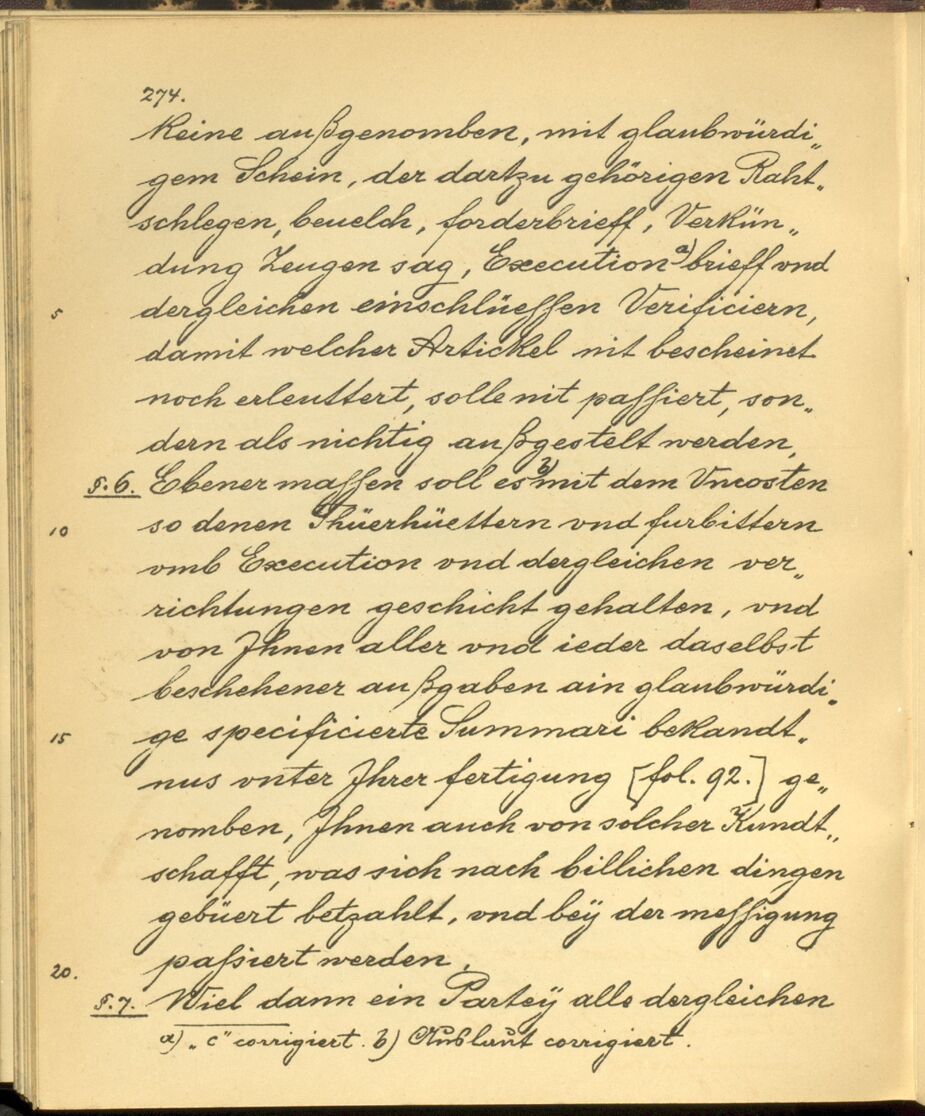 274.
keine außgenomben, mit glaubwürdi„
gem Schein, der dartzu gehörigen Raht„
schlegen, beuelch, forderbrieff, Verkün„
dung Zeugen sag, Execution a) brieff vnd
5 dergleichen einschlüessen Verificiern,
damit welcher Artickel nit bescheinet
noch erleuttert, solle nit passiert, son„
dern als nichtig außgestelt werden,
§. 6. Ebener massen soll es b) mit dem Vncosten
10 so denen Thüerhüettern vnd furbittern
vmb Execution vnd dergleichen ver„
richtungen geschicht gehalten, vnd
von Ihnen aller vnd ieder daselbst
beschehener außgaben ain glaubwürdi„
15 ge specificierte Summari bekandt„
nus vnter Ihrer fertigung [fol. 92.] ge„
nomben, Ihnen auch von solcher Kundt„
schafft, was sich nach billichen dingen
gebüert betzahlt, vnd beÿ der messigung
20. passiert werden.
§. 7. Wiel dann ein Parteÿ alle dergleichen
a) „c" corrigiert. b) Auslaut corrigiert.